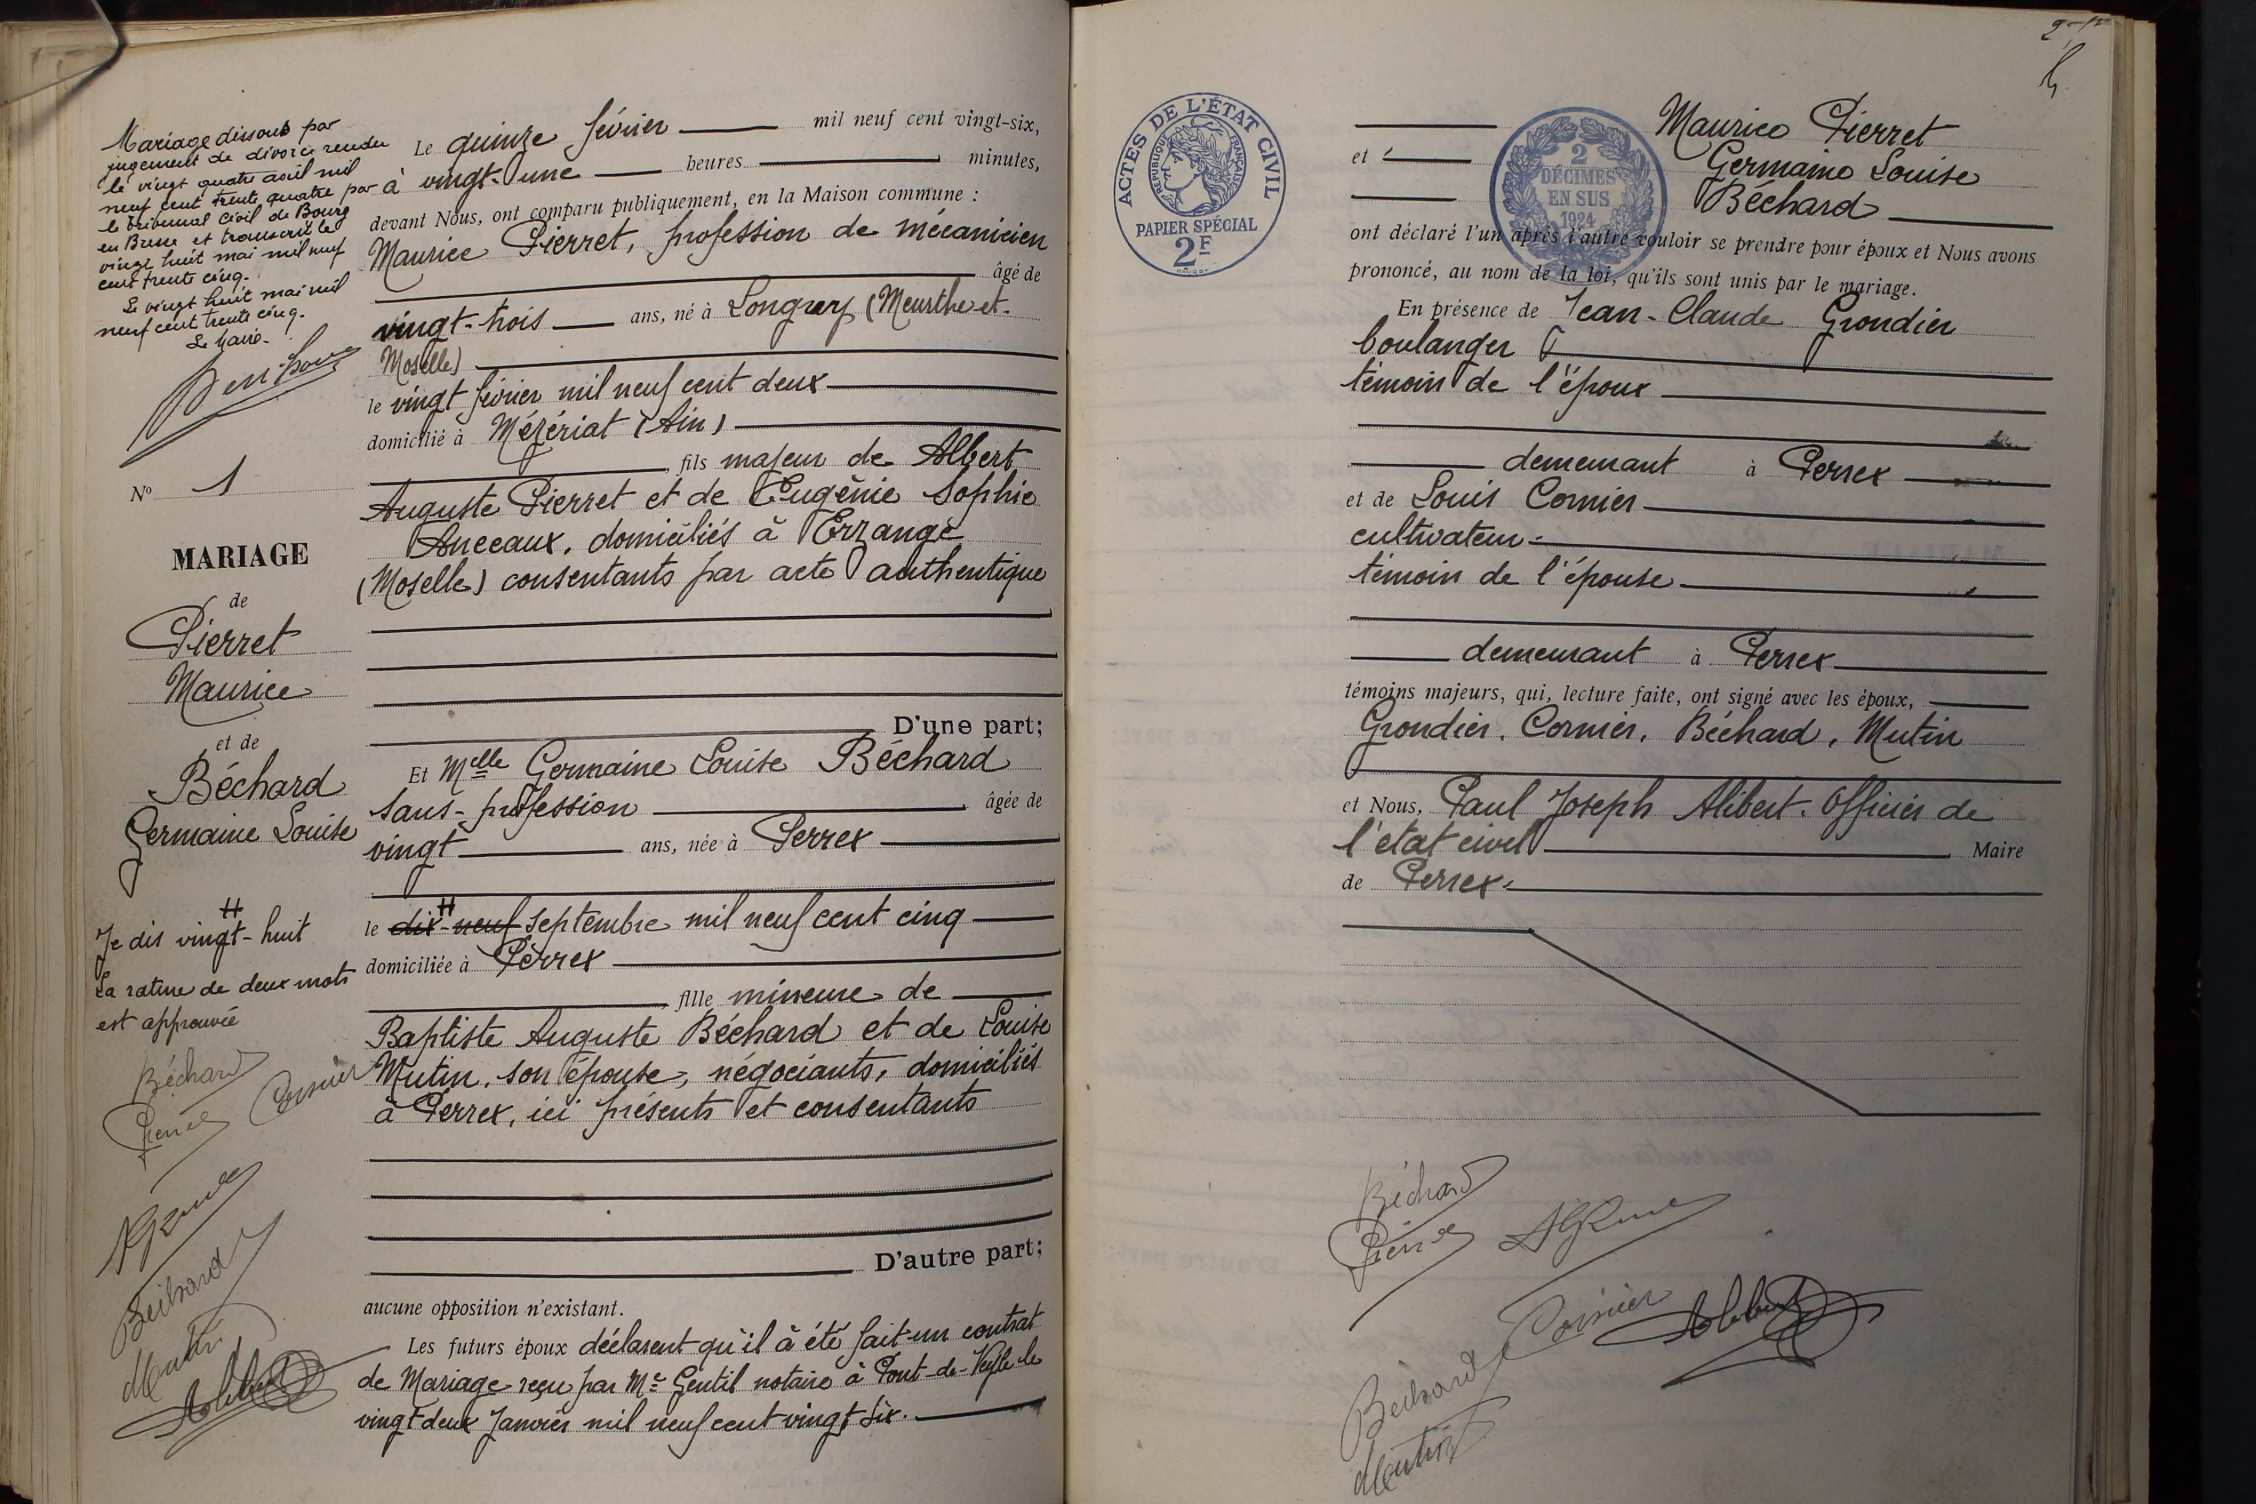 Mariage dissous par
jugement de divorce rendu
le vingt quatre avril mil
neuf cent trente quatre par
le tribunal civil de Bourg
en Bresse et transcrit le
vingt huit mai mil neuf
cent trente cinq.
Le vingt huit mai mil
neuf cent trente cinq.
Le Maire.
No 1
MARIAGE
de
Pierret
Maurice
et de
Béchard
Germaine Louise
H
Je dis vingt-huit
La rature de deux mots
est approuvée
Béchard
Cornier
Pierret
Béchard
Mutin
Le quinze février mil neuf cent vingt-six,
à vingt-une heures minutes,
devant Nous, ont comparu publiquement, en la Maison commune :
Maurice Pierret, profession de mécanicien
âgé de
vingt-trois ans, né à Longwy (Meurthe-et-
Moselle)
le vingt février mil neuf cent deux
domicilié à Mézériat (Ain)
, fils majeur de Albert
Auguste Pierret et de Eugénie Sophie
Anceaux, domiciliés à Erzange
(Moselle) consentants par acte authentique
D'une part;
Et Melle Germaine Louise Béchard
sans-profession âgée de
vingt ans, née à Perrex
H
le dix-neuf septembre mil neuf cent cinq
domiciliée à Perrex
, fille mineure de
Baptiste Auguste Béchard et de Louise
Mutin, son épouse, négociants, domiciliés
à Perrex, ici présents et consentants
D'autre part;
aucune opposition n'existant.
Les futurs époux déclarent qu'il à été fait un contrat
de Mariage reçu par Me Gentil notaire à Pont-de-Veyle le
vingt deux Janvier mil neuf cent vingt six.
ACTES DE L'ÉTAT CIVIL
RÉPUBLIQUE FRANÇAISE
PAPIER SPÉCIAL
2F
2
DÉCIMES
EN SUS
1924
Maurice Pierret
et Germaine Louise
Béchard
ont déclaré l'un après l'autre vouloir se prendre pour époux et Nous avons
prononcé, au nom de la loi, qu'ils sont unis par le mariage.
En présence de Jean-Claude Grondier
boulanger
témoin de l'époux
demeurant à Perrex
et de Louis Cornier
cultivateur
témoin de l'épouse
demeurant à Perrex
témoins majeurs, qui, lecture faite, ont signé avec les époux,
Grondier, Cornier, Béchard, Mutin
et Nous, Paul Joseph Alibert. Officier de
l'état civil Maire
de Perrex.
Béchard
Pierret
Cornier
Alibert
Béchard
Mutin